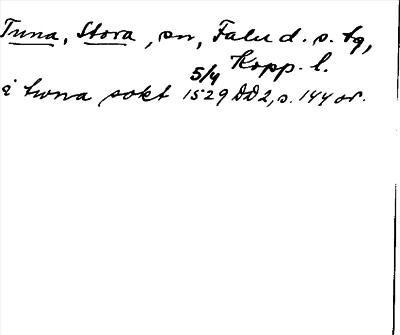 Tuna, Stora, sn, Falu d. s. tg,
Kopp. l.
i twna sokt 5/4 1529 DD2, s. 144 or.